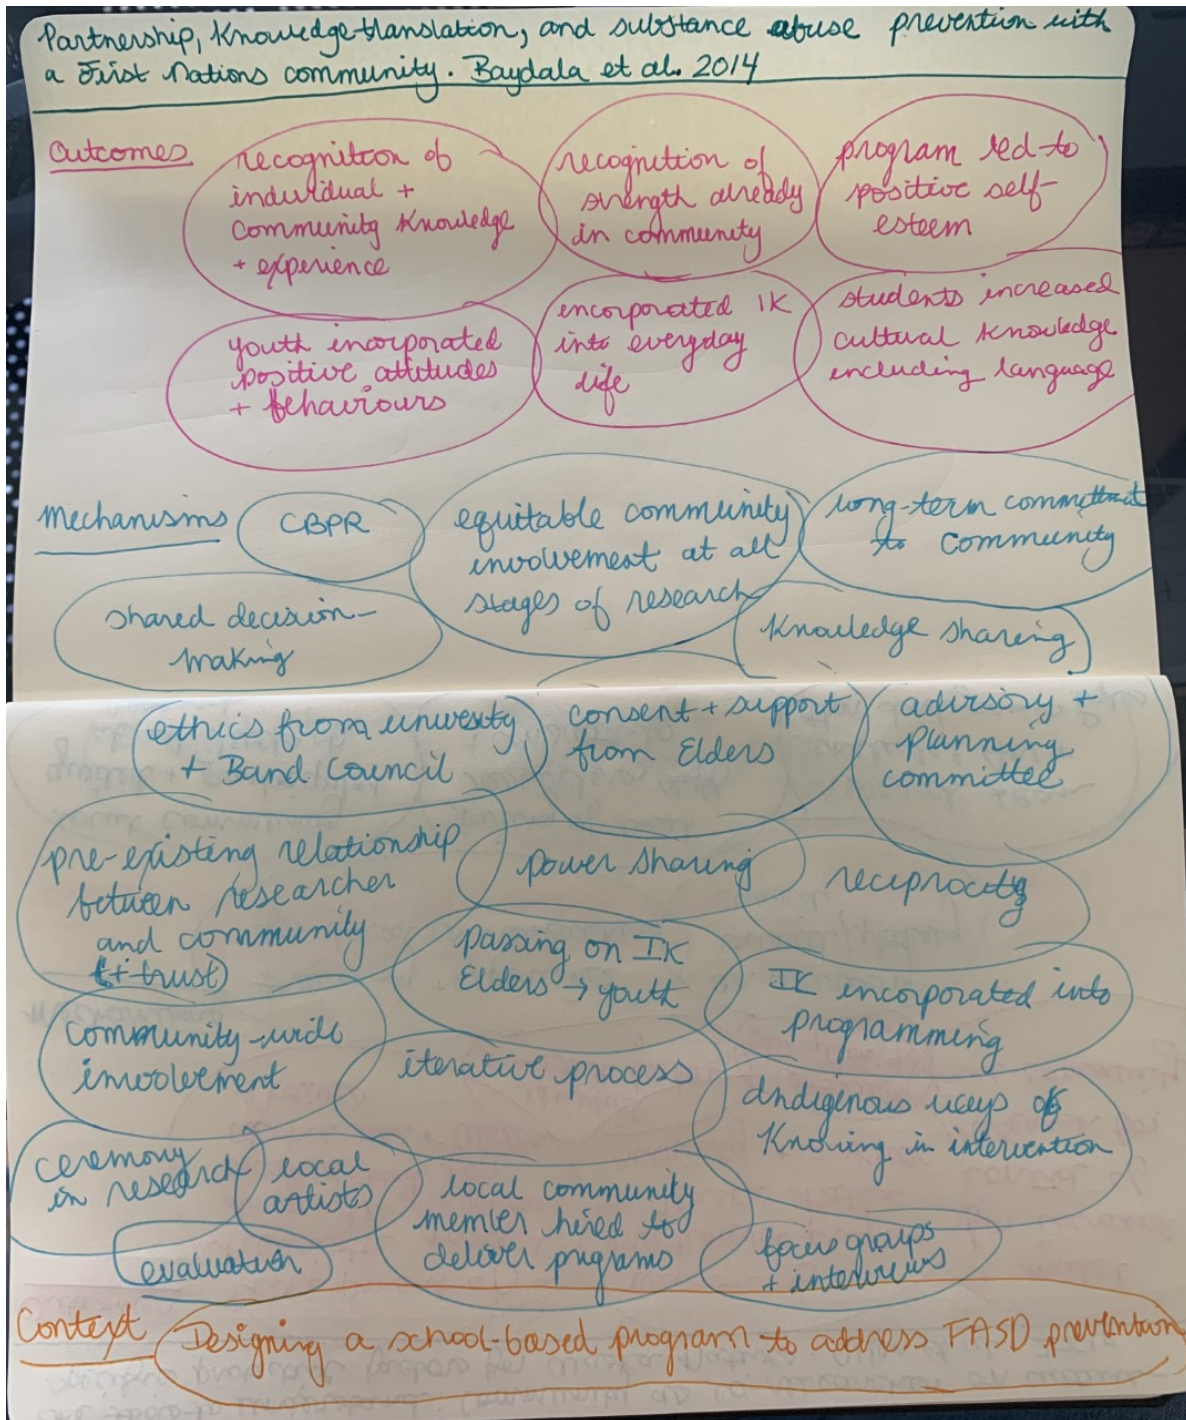 Partnership, Knowledge-translation, and substance abuse prevention with
a First Nations community. Baydala et al. 2014
Outcomes
recognition of
individual +
community knowledge
+ experience
recognition of
strength already
in community
program led to
positive self-
esteem
youth incorporated
positive attitudes
+ behaviours
incorporated IK
into everyday
life
students increased
cultural knowledge
including language
Mechanisms
CBPR
equitable community
involvement at all
stages of research
long-term commitment
to community
shared decision-
making
knowledge sharing
ethics from university
+ Band Council
consent + support
from Elders
advisory +
planning
committee
pre-existing relationship
between researcher
and community
(+ trust)
power sharing
reciprocity
passing on IK
Elders → youth
IK incorporated into
programming
community-wide
involvement
iterative process
Indigenous ways of
Knowing in intervention
ceremony
in research
local
artists
local community
member hired to
deliver programs
focus groups
+ interviews
evaluation
Context
Designing a school-based program to address FASD prevention